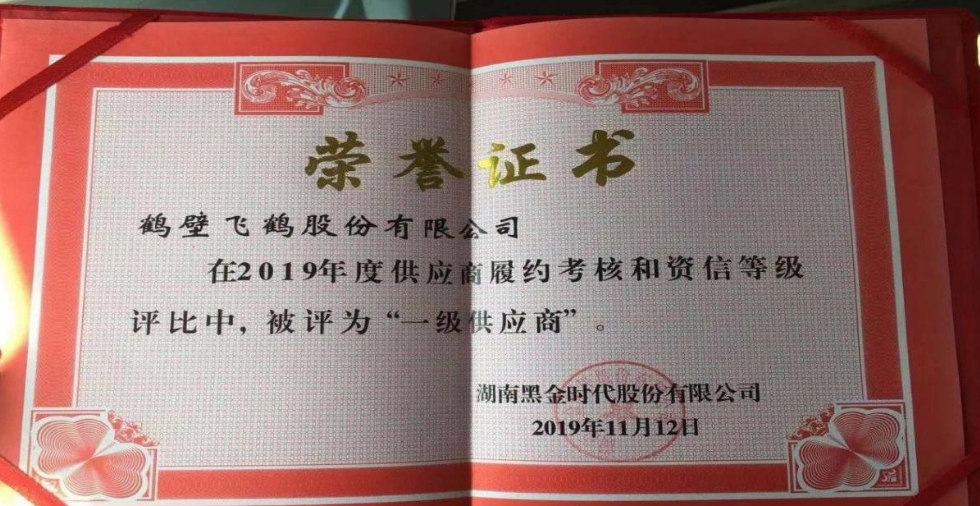 荣誉证书
鹤壁飞鹤股份有限公司
在2019年度供应商履约考核和资信等级
评比中，被评为“一级供应商”。
湖南黑金时代股份有限公司
2019年11月12日